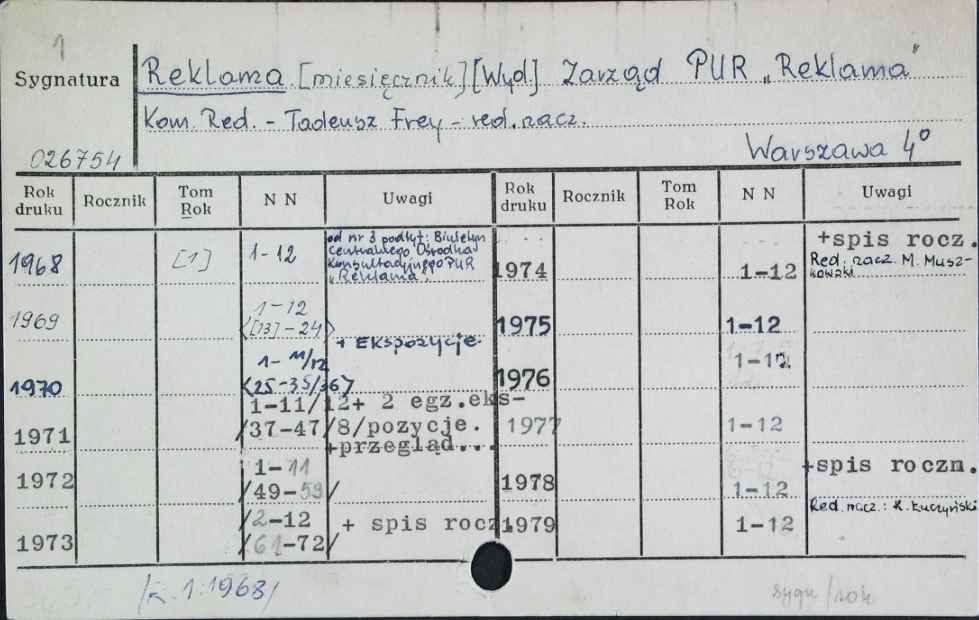 1
Sygnatura Reklama [miesięcznik] [Wyd.] Zarząd PUR „Reklama”
Kom. Red. - Tadeusz Frey - red. nacz.
026754 Warszawa 4°
Rok druku Rocznik Tom Rok N N Uwagi Rok druku Rocznik Tom Rok N N Uwagi
1968 [1] 1-12
od nr 3 podtyt: Biuletyn
Centralnego Ośrodka
Konsultacyjnego PUR
„Reklama”.
1969 1-12
<[13]-24>
+ Ekspozycje.
1970 1-11/12
<25-35/36>
1971 1-11/12+ 2 egz.eks-
/37-47/8/pozycje.
+przegląd...
1972 1-11
/49-59/
1973 /2-12 + spis rocz.
/61-72/
1974 1-12 +spis rocz.
Red. nacz. M. Musz-
kowski
1975 1-12
1976 1-12
1977 1-12
1978 1-12 +spis roczn.
1979 1-12 Red. nacz.: R. Łuczyński
/k. 1:1968/
sygn/rok